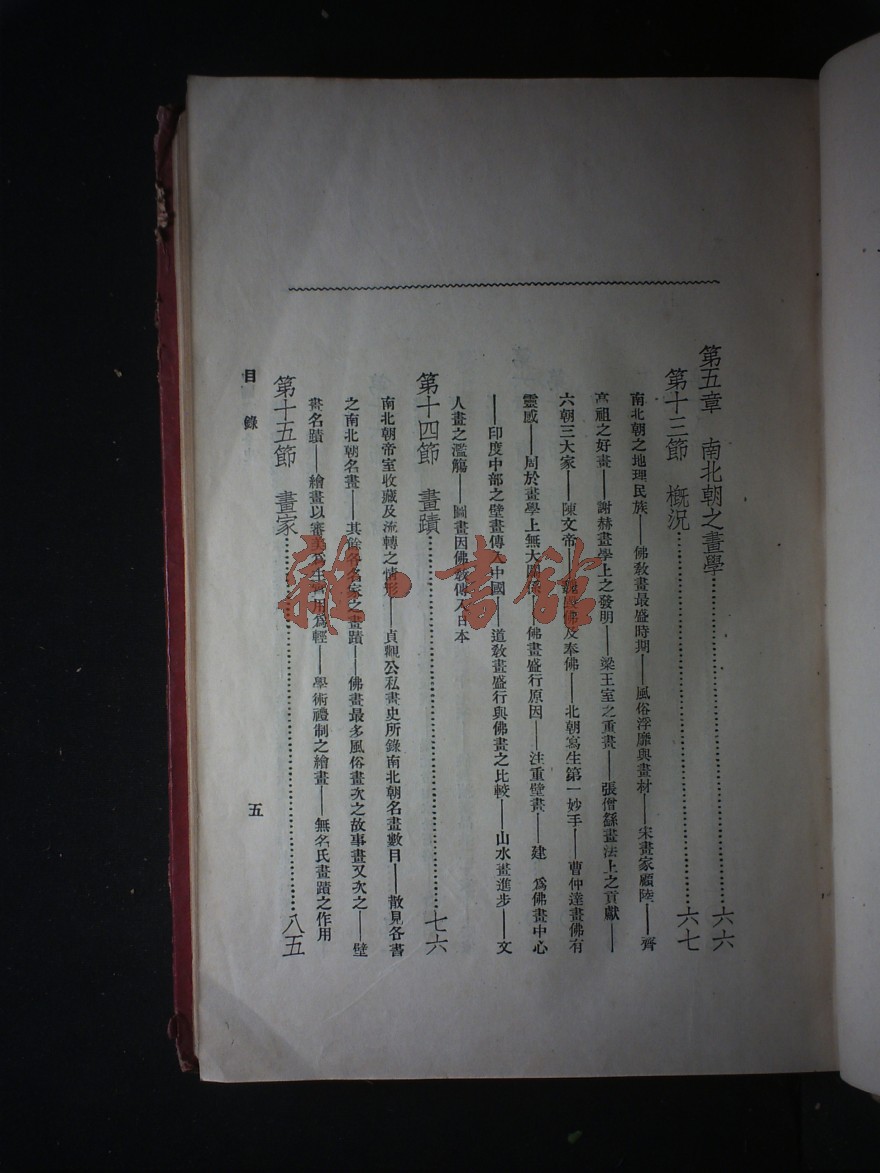 第五章　南北朝之畫學⋯⋯⋯⋯⋯⋯六六
第十三節　概況⋯⋯⋯⋯⋯⋯六七
南北朝之地理民族——佛敎畫最盛時期——風俗浮靡與畫材——宋畫家顧陸——齊
高祖之好畫——謝赫畫學上之發明——梁王室之重畫——張僧繇畫法上之貢獻——
六朝三大家——陳文帝——魏 佛及奉佛——北朝寫生第一妙手——曹仲達畫佛有
靈感——周於畫學上無大關係——佛畫盛行原因——注重壁畫——建　爲佛畫中心
——印度中部之壁畫傳入中國——道敎畫盛行與佛畫之比較——山水畫進步——文
人畫之濫觴——圖畫因佛敎傳入日本
第十四節　畫蹟⋯⋯⋯⋯⋯⋯七六
南北朝帝室收藏及流轉之情形——貞觀公私畫史所錄南北朝名畫數目——散見各書
之南北朝名畫——其餘各名家之畫蹟——佛畫最多風俗畫次之故事畫又次之——壁
畫名蹟——繪畫以審美爲主實用爲輕——學術禮制之繪畫——無名氏畫蹟之作用
第十五節　畫家⋯⋯⋯⋯⋯⋯八五
目錄
五
雜·書館